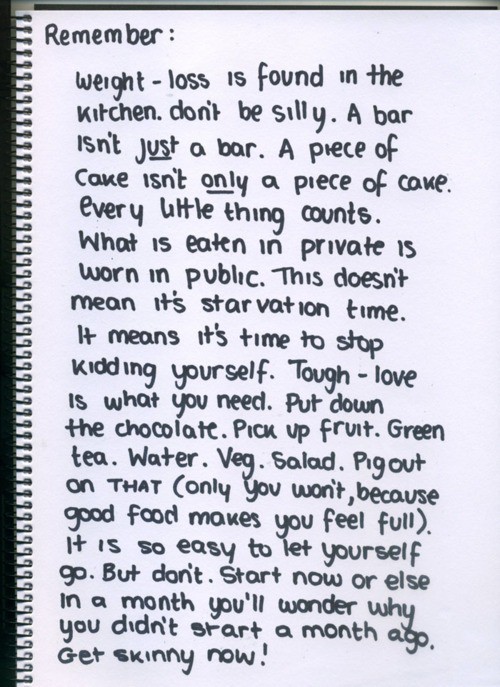 Remember:
Weight-loss is found in the
kitchen. don't be silly. A bar
isn't just a bar. A piece of
cake isn't only a piece of cake.
Every little thing counts.
What is eaten in private is
worn in public. This doesn't
mean it's starvation time.
It means it's time to stop
kidding yourself. Tough-love
is what you need. Put down
the chocolate. Pick up fruit. Green
tea. Water. Veg. Salad. Pig out
on THAT (only you won't, because
good food makes you feel full).
It is so easy to let yourself
go. But don't. Start now or else
in a month you'll wonder why
you didn't start a month ago.
Get skinny now!